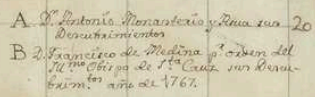 A D.n Antonio Monasterio y Rua sus 20
Descubrimientos
B D. Francisco de Medina p.r orden del
Ill.mo Obispo de S.ta Cruz sus Descu-
brim.tos año de 1767.